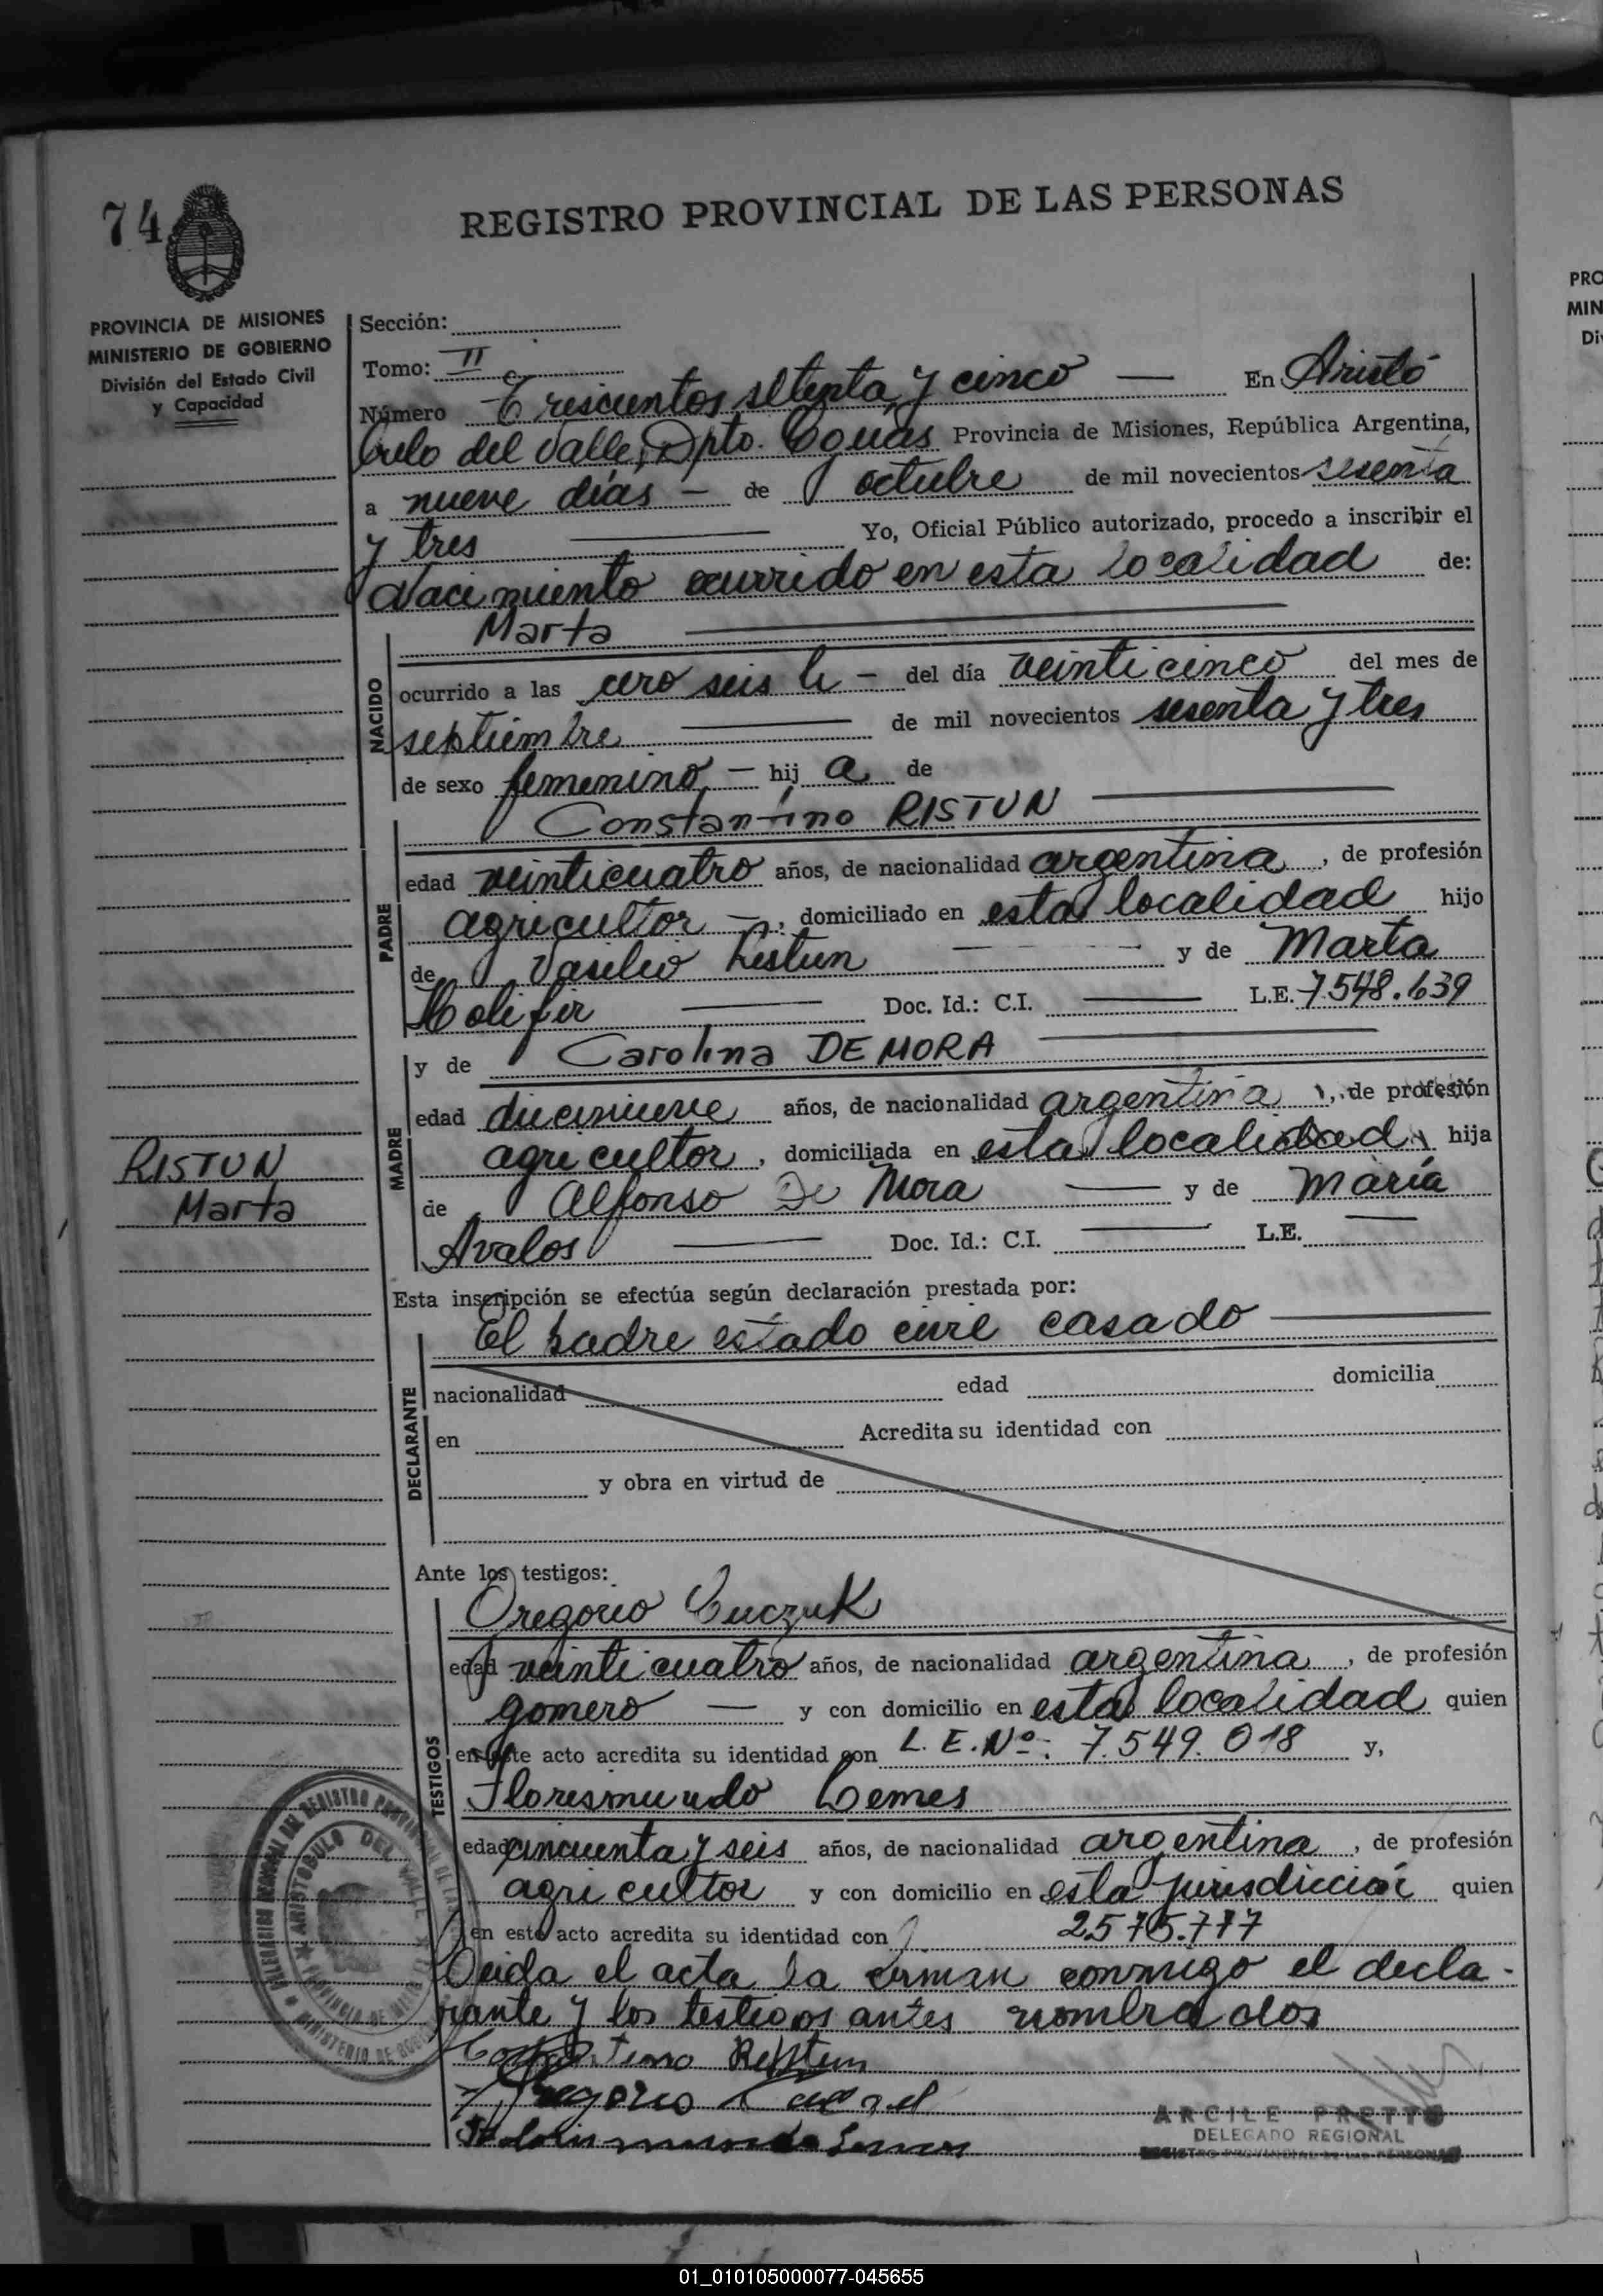 74
REGISTRO PROVINCIAL DE LAS PERSONAS
PROVINCIA DE MISIONES
MINISTERIO DE GOBIERNO
División del Estado Civil
y Capacidad
Sección:
Tomo: II
Número Trescientos setenta y cinco — En Aristó
bulo del Valle, Dpto. Caguas Provincia de Misiones, República Argentina,
a nueve días — de octubre de mil novecientos sesenta
y tres — Yo, Oficial Público autorizado, procedo a inscribir el
Nacimiento ocurrido en esta localidad de:
Marta
NACIDO
ocurrido a las cero seis h — del día veinticinco del mes de
septiembre — de mil novecientos sesenta y tres
de sexo femenino — hij a de
Constantino RISTUN
PADRE
edad veinticuatro años, de nacionalidad argentina, de profesión
agricultor —, domiciliado en esta localidad hijo
de Vasilio Ristun — y de Marta
Holifer — Doc. Id.: C.I. — L.E. 7.548.639
y de Carolina DE MORA
MADRE
edad diecinueve años, de nacionalidad argentina, de profesión
agricultor, domiciliada en esta localidad, hija
de Alfonso De Mora — y de María
Avalos — Doc. Id.: C.I. — L.E. —
RISTUN
Marta
Esta inscripción se efectúa según declaración prestada por:
El padre estado civil casado
DECLARANTE
nacionalidad edad domicilia
en Acredita su identidad con
y obra en virtud de
Ante los testigos:
TESTIGOS
Gregorio
edad veinticuatro años, de nacionalidad argentina, de profesión
gomero — y con domicilio en esta localidad quien
en este acto acredita su identidad con L. E. Nº: 7.549.018 y,
Floresmundo Lemes
edad cincuenta y seis años, de nacionalidad argentina, de profesión
agricultor y con domicilio en esta jurisdicción quien
en este acto acredita su identidad con 2575.777
Leida el acta la firman conmigo el decla-
rante y los testigos antes nombrados
Constantino Ristun
Gregorio
ARISTOBULO DEL VALLE
ARCILE PRETTO
DELEGADO REGIONAL
REGISTRO PROVINCIAL DE LAS PERSONAS
PRO
MIN
Di
01_010105000077-045655